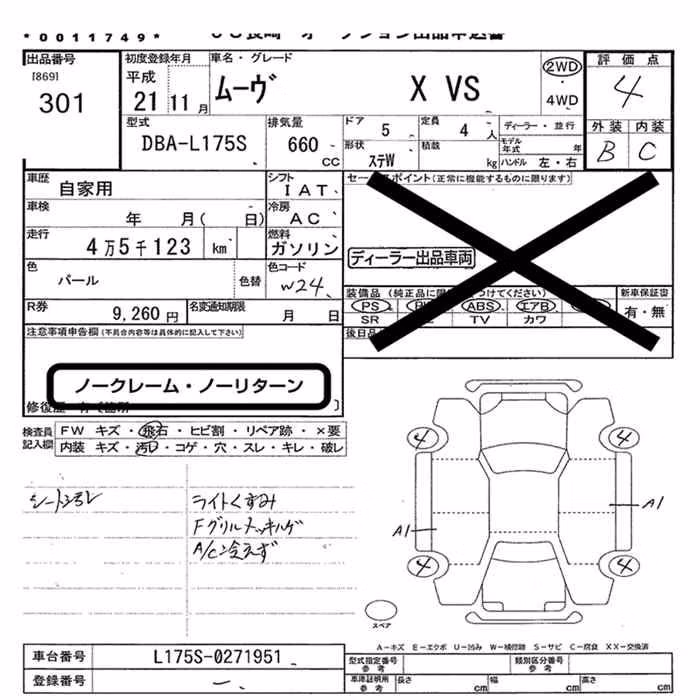 *0011749*
出品番号
[869]
301
初度登録年月
平成
21 11月
車名・グレード
ムーヴ X VS
2WD
・
4WD
評価点
4
外装 内装
B C
型式
DBA-L175S
排気量
660
CC
ドア
5
定員
4 人
ディーラー・並行
モデル年式 年
形状
ステW
積載
kg
ハンドル 左・右
車歴
自家用
シフト
IAT
車検
年 月( 日)
冷房
AC
走行
4万5千123 km
燃料
ガソリン
色
パール
色替
色コード
W24
R券
9,260円
名変通知期限
月 日
注意事項申告欄(不具合内容等は具体的に記入して下さい)
ノークレーム・ノーリターン
ポイント(正常に機能するものに限ります)
ディーラー出品車両
装備品
PS ABS エアB
SR TV カワ
新車保証書
有・無
後日品
検査員記入欄
FW キズ・飛石・ヒビ割・リペア跡・×要
内装 キズ・汚れ・コゲ・穴・スレ・キレ・破レ
ライトくすみ
Fグリルメッキハゲ
A/C冷えず
4 4
A1 A1
4 4
スペア
A−キズ E−エクボ U−凹み W−補修跡 S−サビ C−腐食 XX−交換済
車台番号
L175S-0271951
登録番号
型式指定番号
参考
類別区分番号
参考
車庫証明用
参考
長さ cm
幅 cm
高さ cm